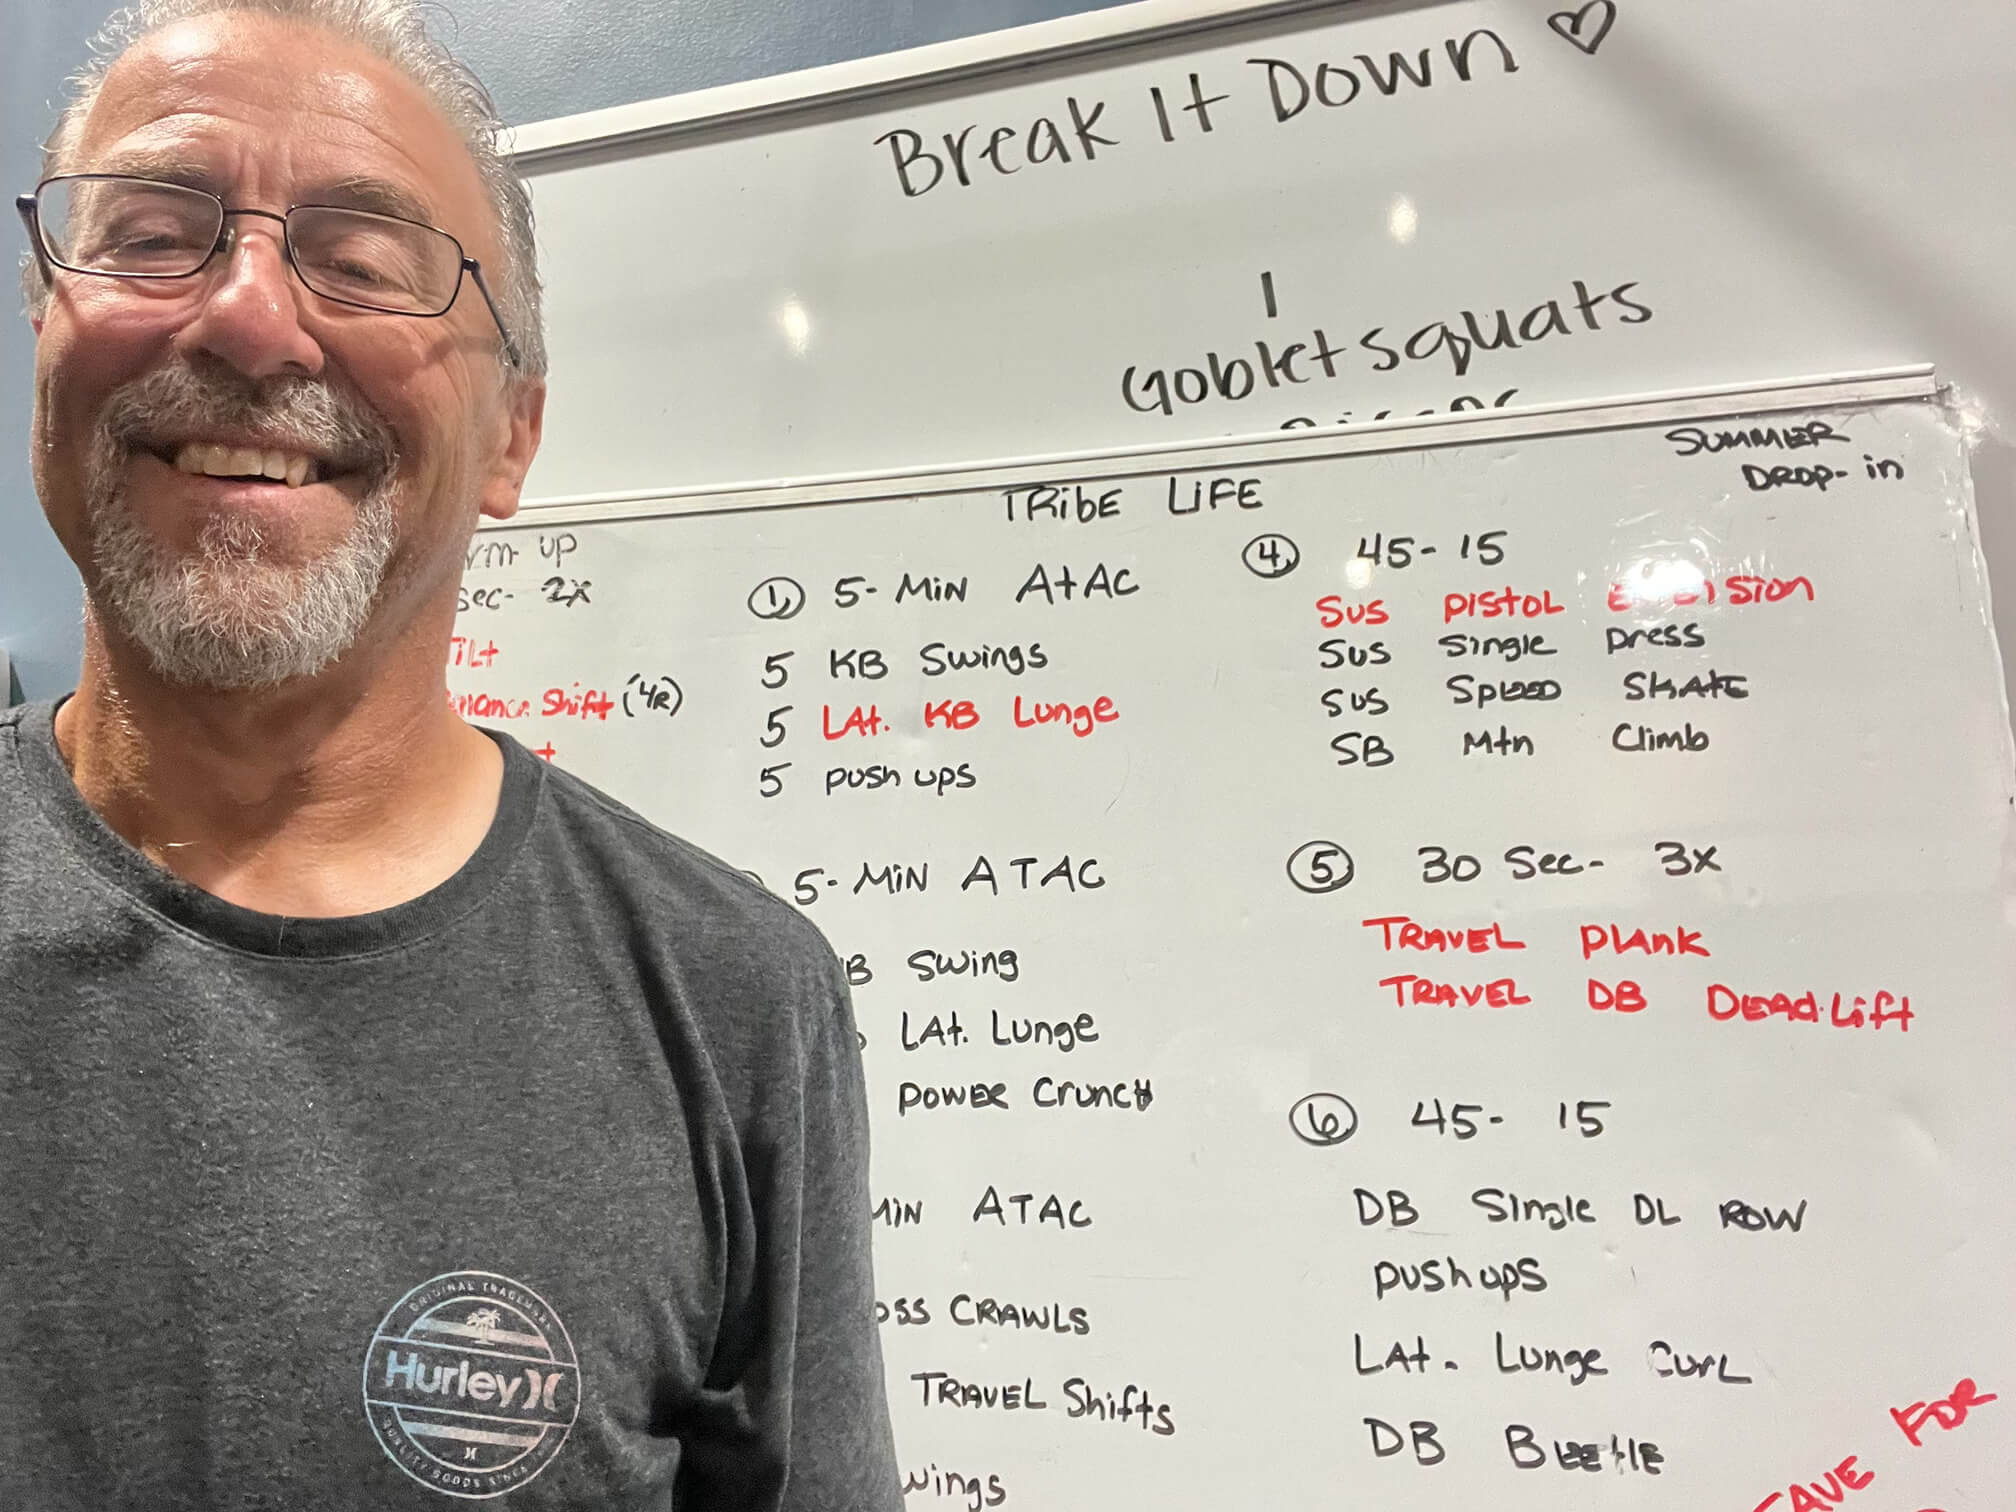 Break It Down
1
Goblet squats
SUMMER
DROP-in
TRibE LiFE
up
sec- 2x
TiLt
Shift (4R)
1 5-MiN AtAC
5 KB Swings
5 LAt. KB Lunge
5 push ups
5-MiN ATAC
Swing
LAt. Lunge
POWER CrunCH
MiN ATAC
CRAWLS
TRAVEL Shifts
4 45-15
Sus PiStOL
Sus Single press
Sus SpEED SKAtE
SB Mtn Climb
5 30 Sec- 3x
TRAVEL PLAnK
TRAVEL DB DEAd.Lift
6 45-15
DB Single DL ROW
push ups
LAt. Lunge CurL
DB BEEtlE
FOR
ORIGINAL TRADEMARK
Hurley